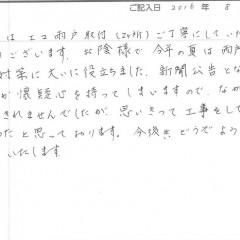 ご記入日 2016 年 8
は エコ雨戸取付(2ヶ所)ご丁寧にしていた
ございます。お陰様で今年の夏は雨戸
対策に大いに役立ちました。新聞広告とな
が懐疑心を持ってしまいますので、なか
されませんでしたが、思いきって工事をして
ったと思っております。今後共どうぞよう
いたします